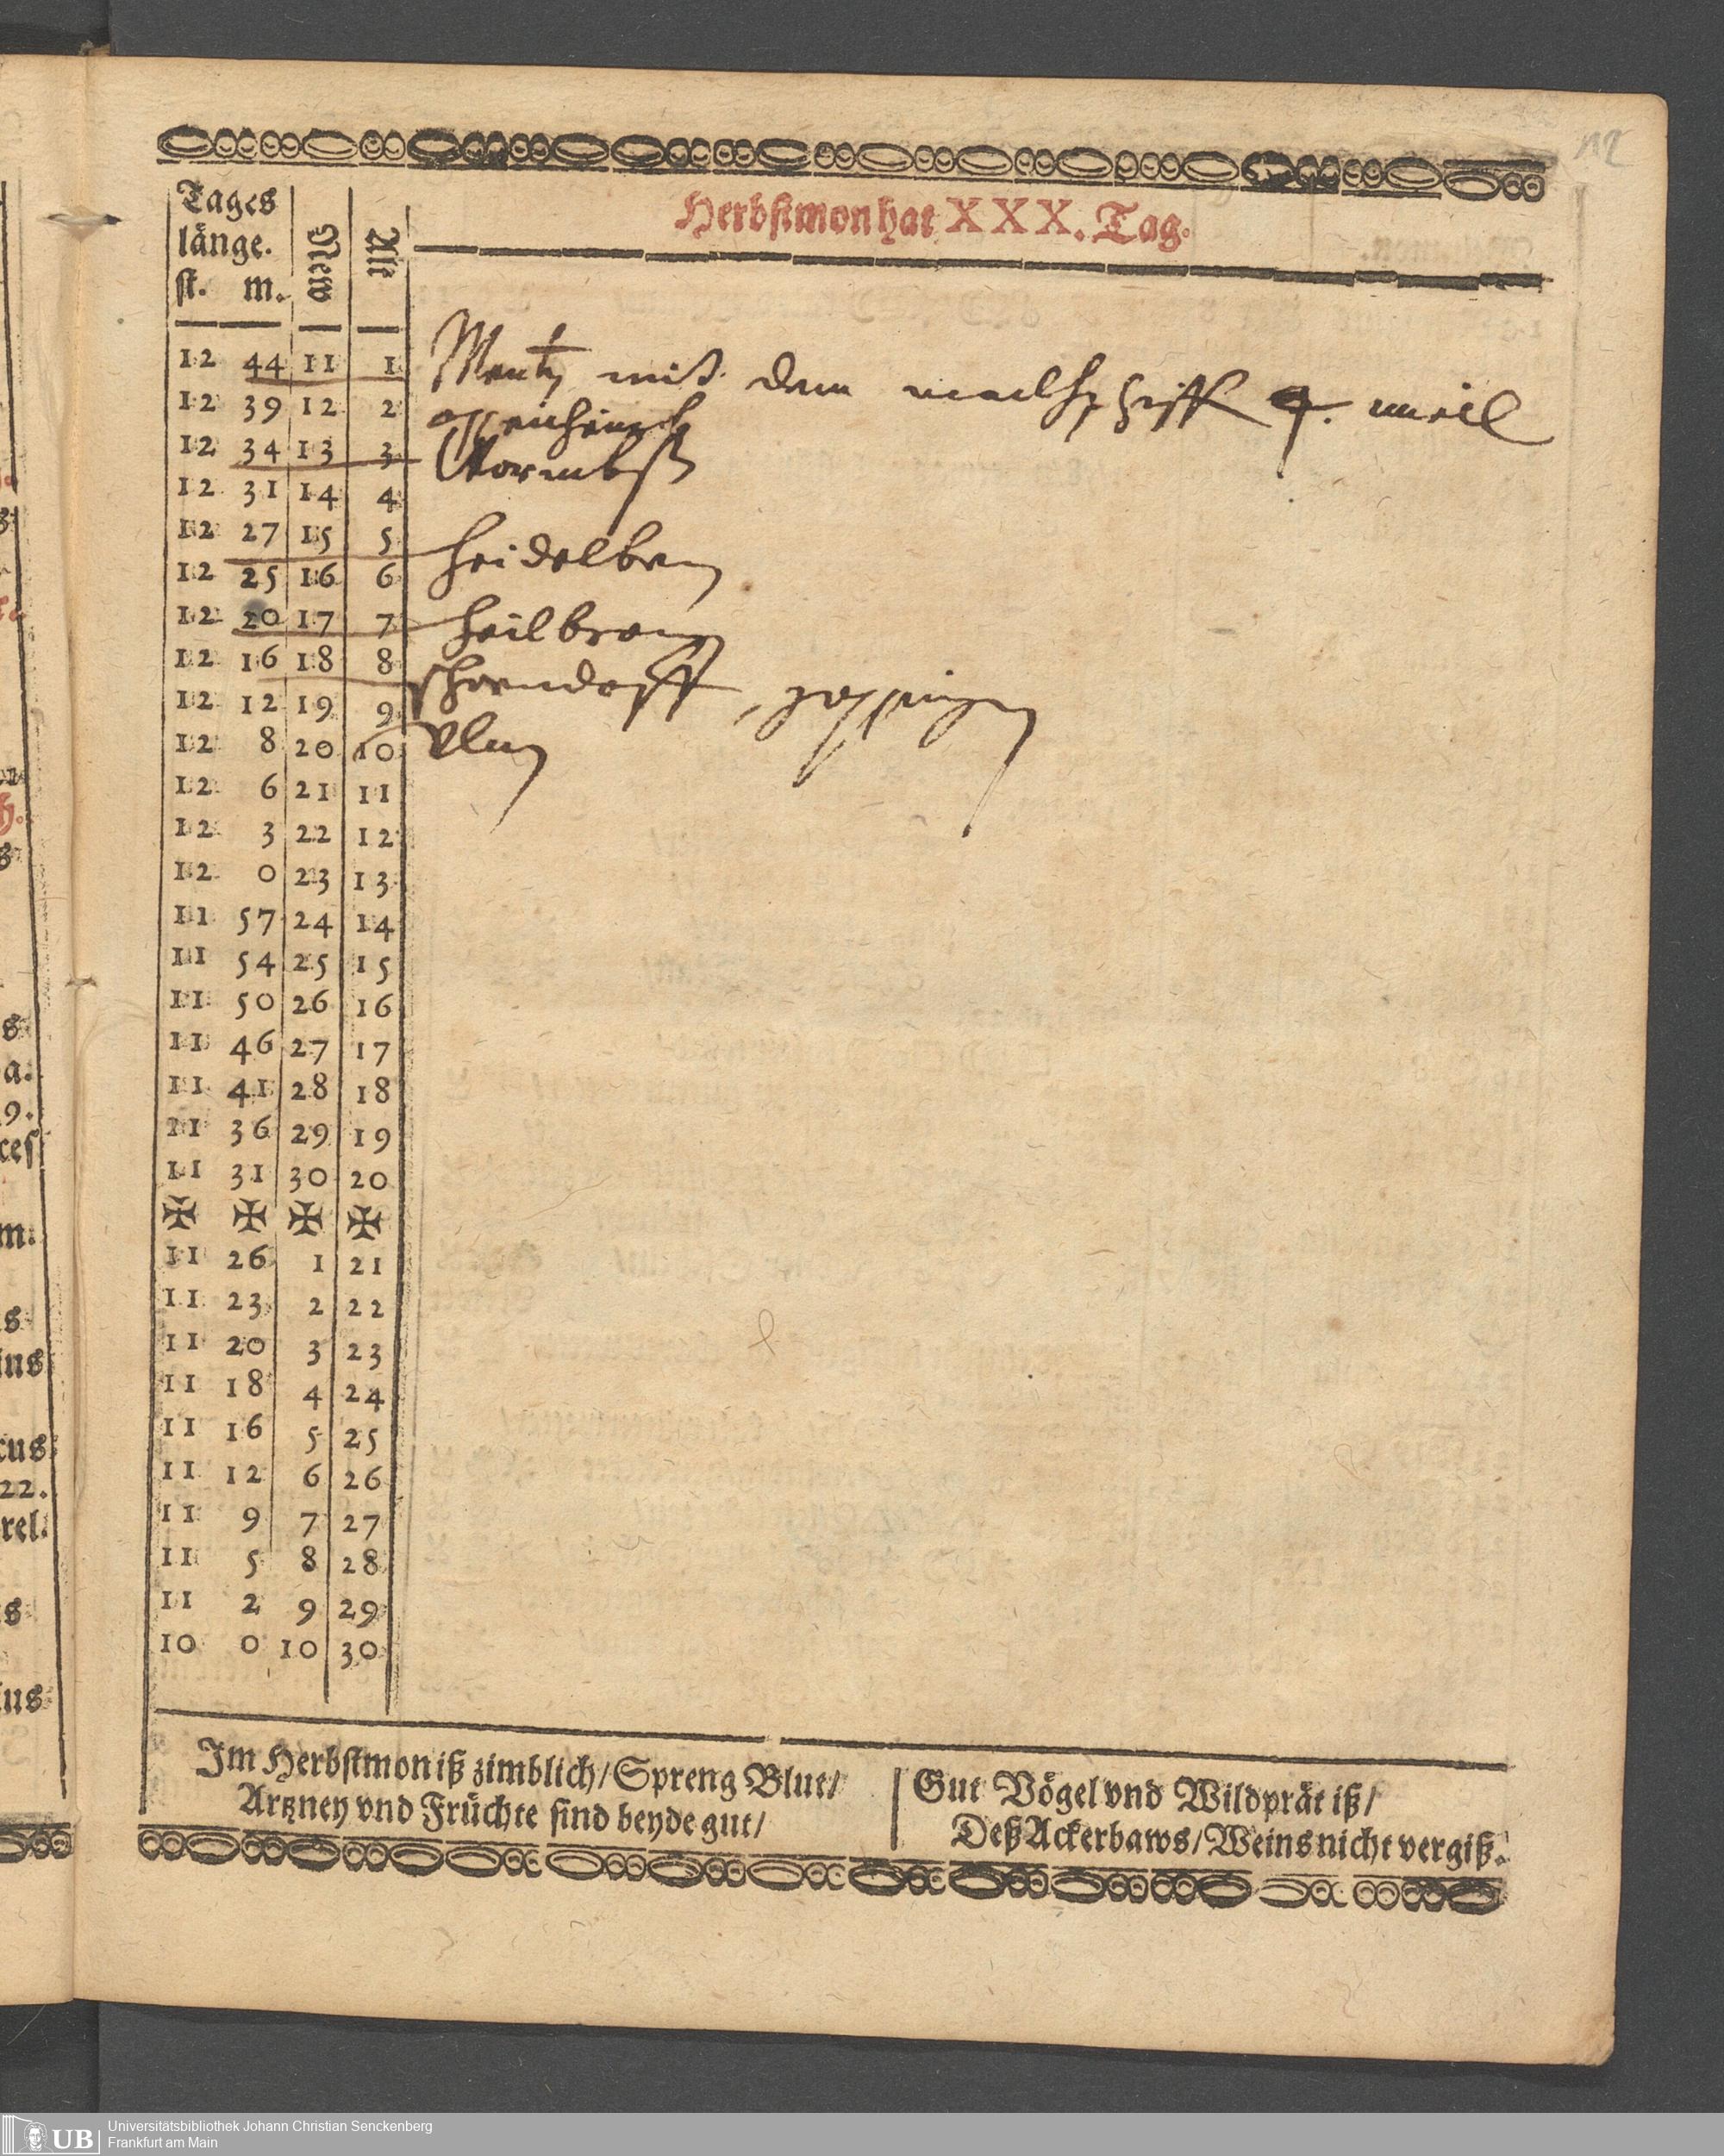 Herbstmon hat XXX. Tag.
Tages
länge.
st. m.
New
Alt
12 44 11 1
12 39 12 2
12 34 13 3
12 31 14 4
12 27 15 5
12 25 16 6
12 20 17 7
12 16 18 8
12 12 19 9
12 8 20 10
12 6 21 11
12 3 22 12
12 0 23 13
11 57 24 14
11 54 25 15
11 50 26 16
11 46 27 17
11 41 28 18
11 36 29 19
11 31 30 20
✠ ✠ ✠ ✠
11 26 1 21
11 23 2 22
11 20 3 23
11 18 4 24
11 16 5 25
11 12 6 26
11 9 7 27
11 5 8 28
11 2 9 29
10 0 10 30
Mentz mit dem meil
Wormbß
heidelberg
heilbron
schorndorff, göppingen
Vlm
Im Herbstmon iß zimblich/ Spreng Blut/
Artzney vnd Früchte sind beyde gut/
Gut Vögel vnd Wildprät iß/
Deß Ackerbaws/ Weins nicht vergiß.
s
a.
9.
ces
m.
s
ius
cus
22.
rel.
s
ius
UB
Universitätsbibliothek Johann Christian Senckenberg
Frankfurt am Main